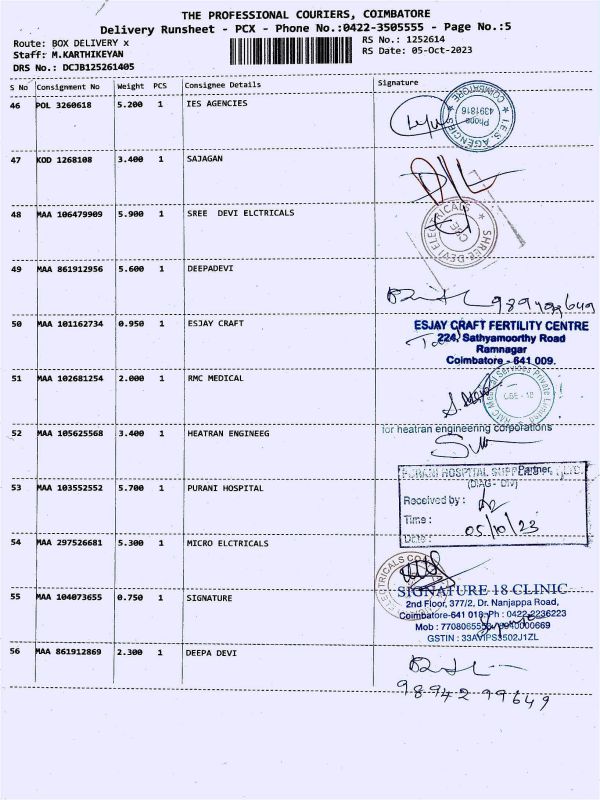 THE PROFESSIONAL COURIERS, COIMBATORE
Delivery Runsheet - PCX - Phone No.:0422-3505555 - Page No.:5
Route: BOX DELIVERY x
RS No.: 1252614
Staff: M.KARTHIKEYAN
RS Date: 05-Oct-2023
DRS No.: DCJB125261405
S No Consignment No Weight PCS Consignee Details Signature
46 POL 3260618 5.200 1 IES AGENCIES
I.E.S. AGENCIES COIMBATORE
Phone
4391816
47 KOD 1268108 3.400 1 SAJAGAN
48 MAA 106479909 5.900 1 SREE DEVI ELCTRICALS
SHREE DEVI ELECTRICALS
CBE
49 MAA 861912956 5.600 1 DEEPADEVI
50 MAA 101162734 0.950 1 ESJAY CRAFT
ESJAY CRAFT FERTILITY CENTRE
224, Sathyamoorthy Road
Ramnagar
Coimbatore - 641 009.
51 MAA 102681254 2.000 1 RMC MEDICAL
RMC Medical Services Private Limited
CBE - 18
52 MAA 105625568 3.400 1 HEATRAN ENGINEEG
for heatran engineering corporations
Partner
53 MAA 103552552 5.700 1 PURANI HOSPITAL
PURANI HOSPITAL SUPPLIES P. LTD.
(DIAG - DIV)
Received by :
Time :
Date : 05/10/23
54 MAA 297526681 5.300 1 MICRO ELCTRICALS
ELECTRICALS
55 MAA 104073655 0.750 1 SIGNATURE
SIGNATURE 18 CLINIC
2nd Floor, 377/2, Dr. Nanjappa Road,
Coimbatore-641 018 Ph : 0422-2236223
Mob : 7708065555 9940000669
GSTIN : 33AVIPS3502J1ZL
56 MAA 861912869 2.300 1 DEEPA DEVI
9894299649